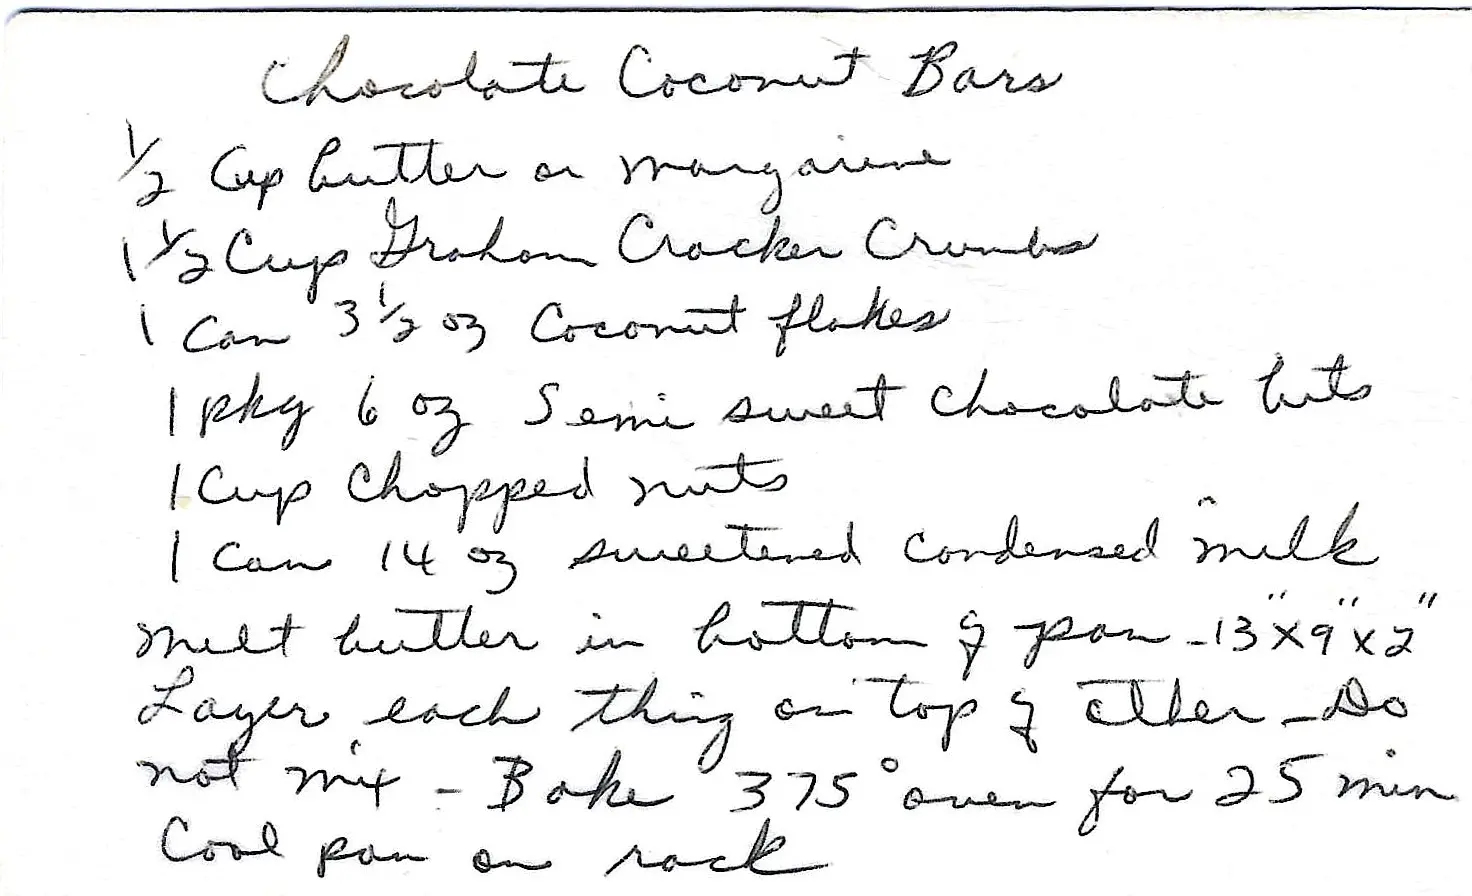 Chocolate Coconut Bars
1/2 Cup butter or margarine
1 1/2 Cup Graham Cracker Crumbs
1 Can 3 1/2 oz Coconut flakes
1 pkg 6 oz Semi sweet chocolate bits
1 Cup Chopped nuts
1 Can 14 oz sweetened condensed milk
Melt butter in bottom of pan - 13" x 9" x 2"
Layer each thing on top of other - Do
not mix - Bake 375° oven for 25 min
Cool pan on rack